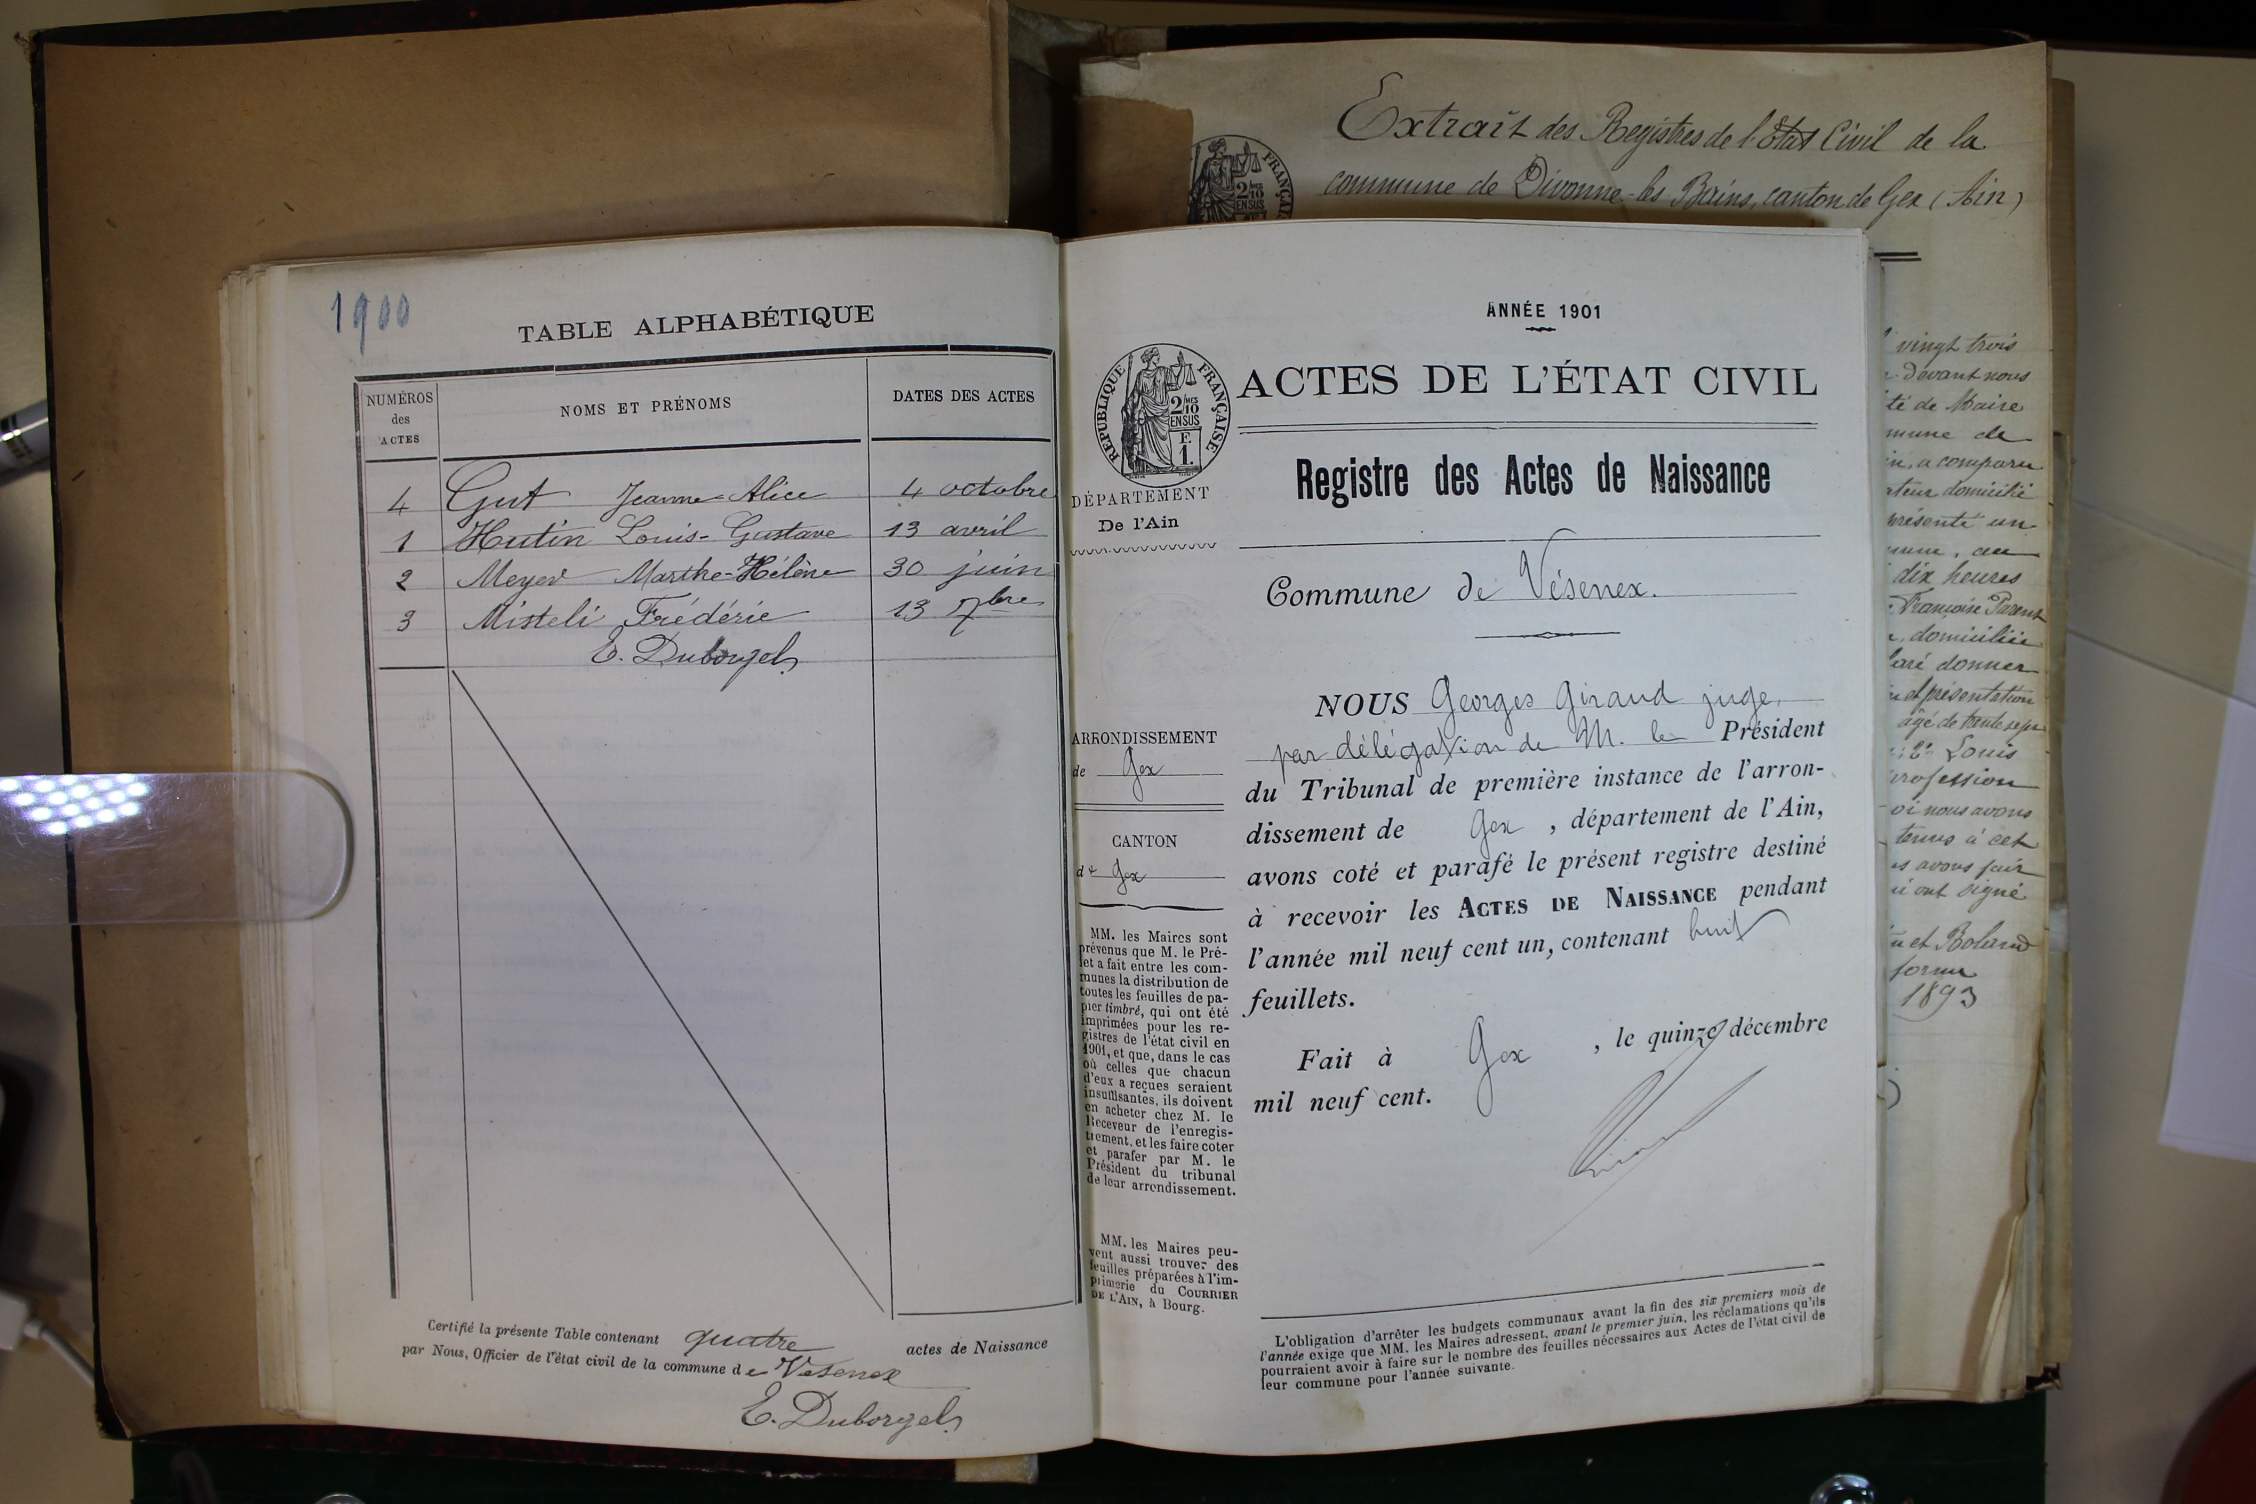 Extrait des Registres de l'Etat Civil de la
commune de Divonne-les-Bains, canton de Gex (Ain)
FRANÇAI
2/10
EN SUS
vingt trois
devant nous
té de Maire
mune de
in, a comparu
ateur domicilié
présenté un
dix heures
Françoise Parent
domiciliée
laré donner
et présentation
âgé de trente sept
2° Louis
profession
oi nous avons
tenus à cet
s avons fait
i ont signé
et Roland
forme
1893
1900
TABLE ALPHABÉTIQUE
NUMÉROS
des
ACTES
NOMS ET PRÉNOMS
DATES DES ACTES
4 Gut Jeanne-Alice 4 octobre
1 Hutin Louis-Gustave 13 avril
2 Meyer Marthe-Hélène 30 juin
3 Misteli Frédéric 13 7bre
E. Duborgel
Certifié la présente Table contenant quatre actes de Naissance
par Nous, Officier de l'état civil de la commune de Vésenex
E. Duborgel
ANNÉE 1901
RÉPUBLIQUE FRANÇAISE
2/10 MES
EN SUS
E
1.
ACTES DE L'ÉTAT CIVIL
DÉPARTEMENT
De l'Ain
Registre des Actes de Naissance
Commune de Vésenex.
ARRONDISSEMENT
de Gex
CANTON
de Gex
MM. les Maires sont
prévenus que M. le Pré-
fet a fait entre les com-
munes la distribution de
toutes les feuilles de pa-
pier timbré, qui ont été
imprimées pour les re-
gistres de l'état civil en
1901, et que, dans le cas
où celles que chacun
d'eux a reçues seraient
insuffisantes, ils doivent
en acheter chez M. le
Receveur de l'enregis-
trement, et les faire coter
et parafer par M. le
Président du tribunal
de leur arrondissement.
MM. les Maires peu-
vent aussi trouver des
feuilles préparées à l'im-
primerie du COURRIER
DE L'AIN, à Bourg.
NOUS Georges Giraud juge,
par délégation de M. le Président
du Tribunal de première instance de l'arron-
dissement de Gex , département de l'Ain,
avons coté et parafé le présent registre destiné
à recevoir les ACTES DE NAISSANCE pendant
l'année mil neuf cent un, contenant huit
feuillets.
Fait à Gex , le quinze décembre
mil neuf cent.
L'obligation d'arrêter les budgets communaux avant la fin des six premiers mois de
l'année exige que MM. les Maires adressent, avant le premier juin, les réclamations qu'ils
pourraient avoir à faire sur le nombre des feuilles nécessaires aux Actes de l'état civil de
leur commune pour l'année suivante.